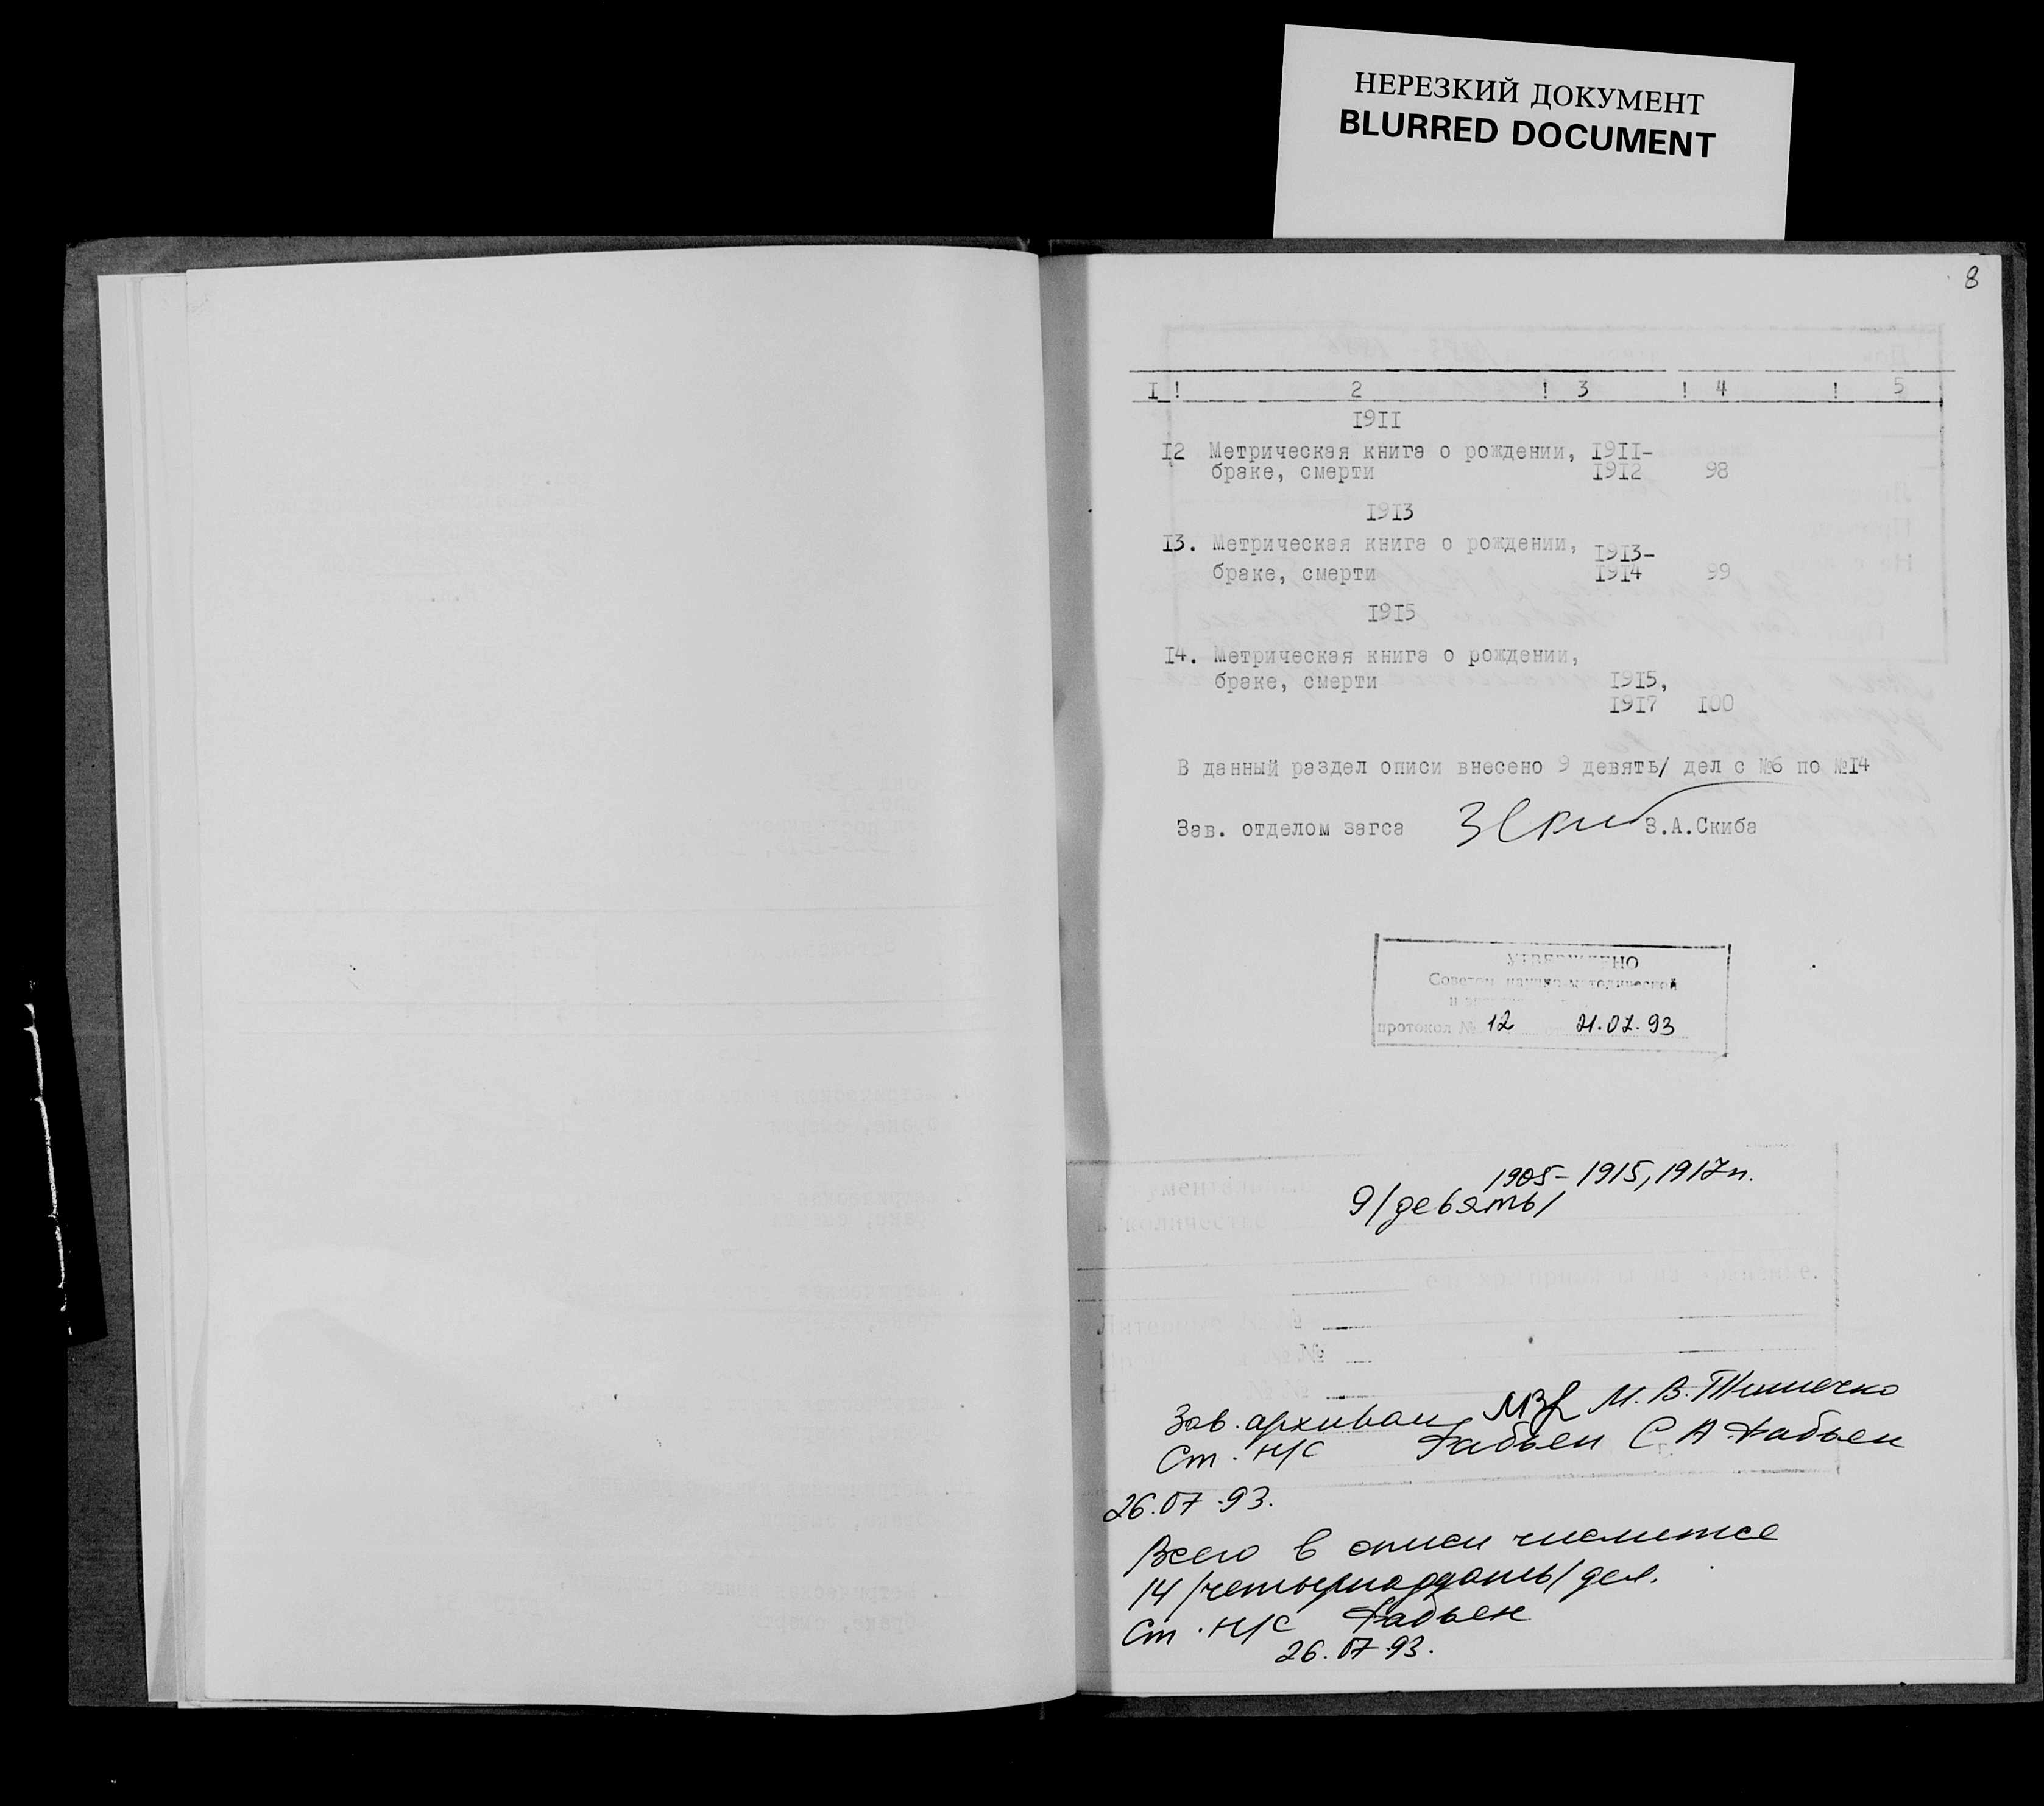 НЕРЕЗКИЙ ДОКУМЕНТ
BLURRED DOCUMENT
8
I ! 2 ! 3 ! 4 ! 5
I9II
I2 Метрическая книга о рождении, I9II-
браке, смерти I9I2 98
I9I3
I3. Метрическая книга о рождении, I9I3-
браке, смерти I9I4 99
I9I5
I4. Метрическая книга о рождении,
браке, смерти I9I5,
I9I7 I00
В данный раздел описи внесено 9 девять/ дел с №6 по №I4
Зав. отделом загса З.А.Скиба
УТВЕРЖДЕНО
Советом научно-методической
протокол № 12 21.07.93
1905-1915, 1917гг.
9/девять/
количестве
ед. хр. приняты на хранение.
Зав. архивом М.В.Тимочко
Ст. н/с Фабьен С А Фабьен
26.07.93.
Всего в описи числится
14/четырнадцать/ дел.
Ст. н/с Фабьен
26.07.93.